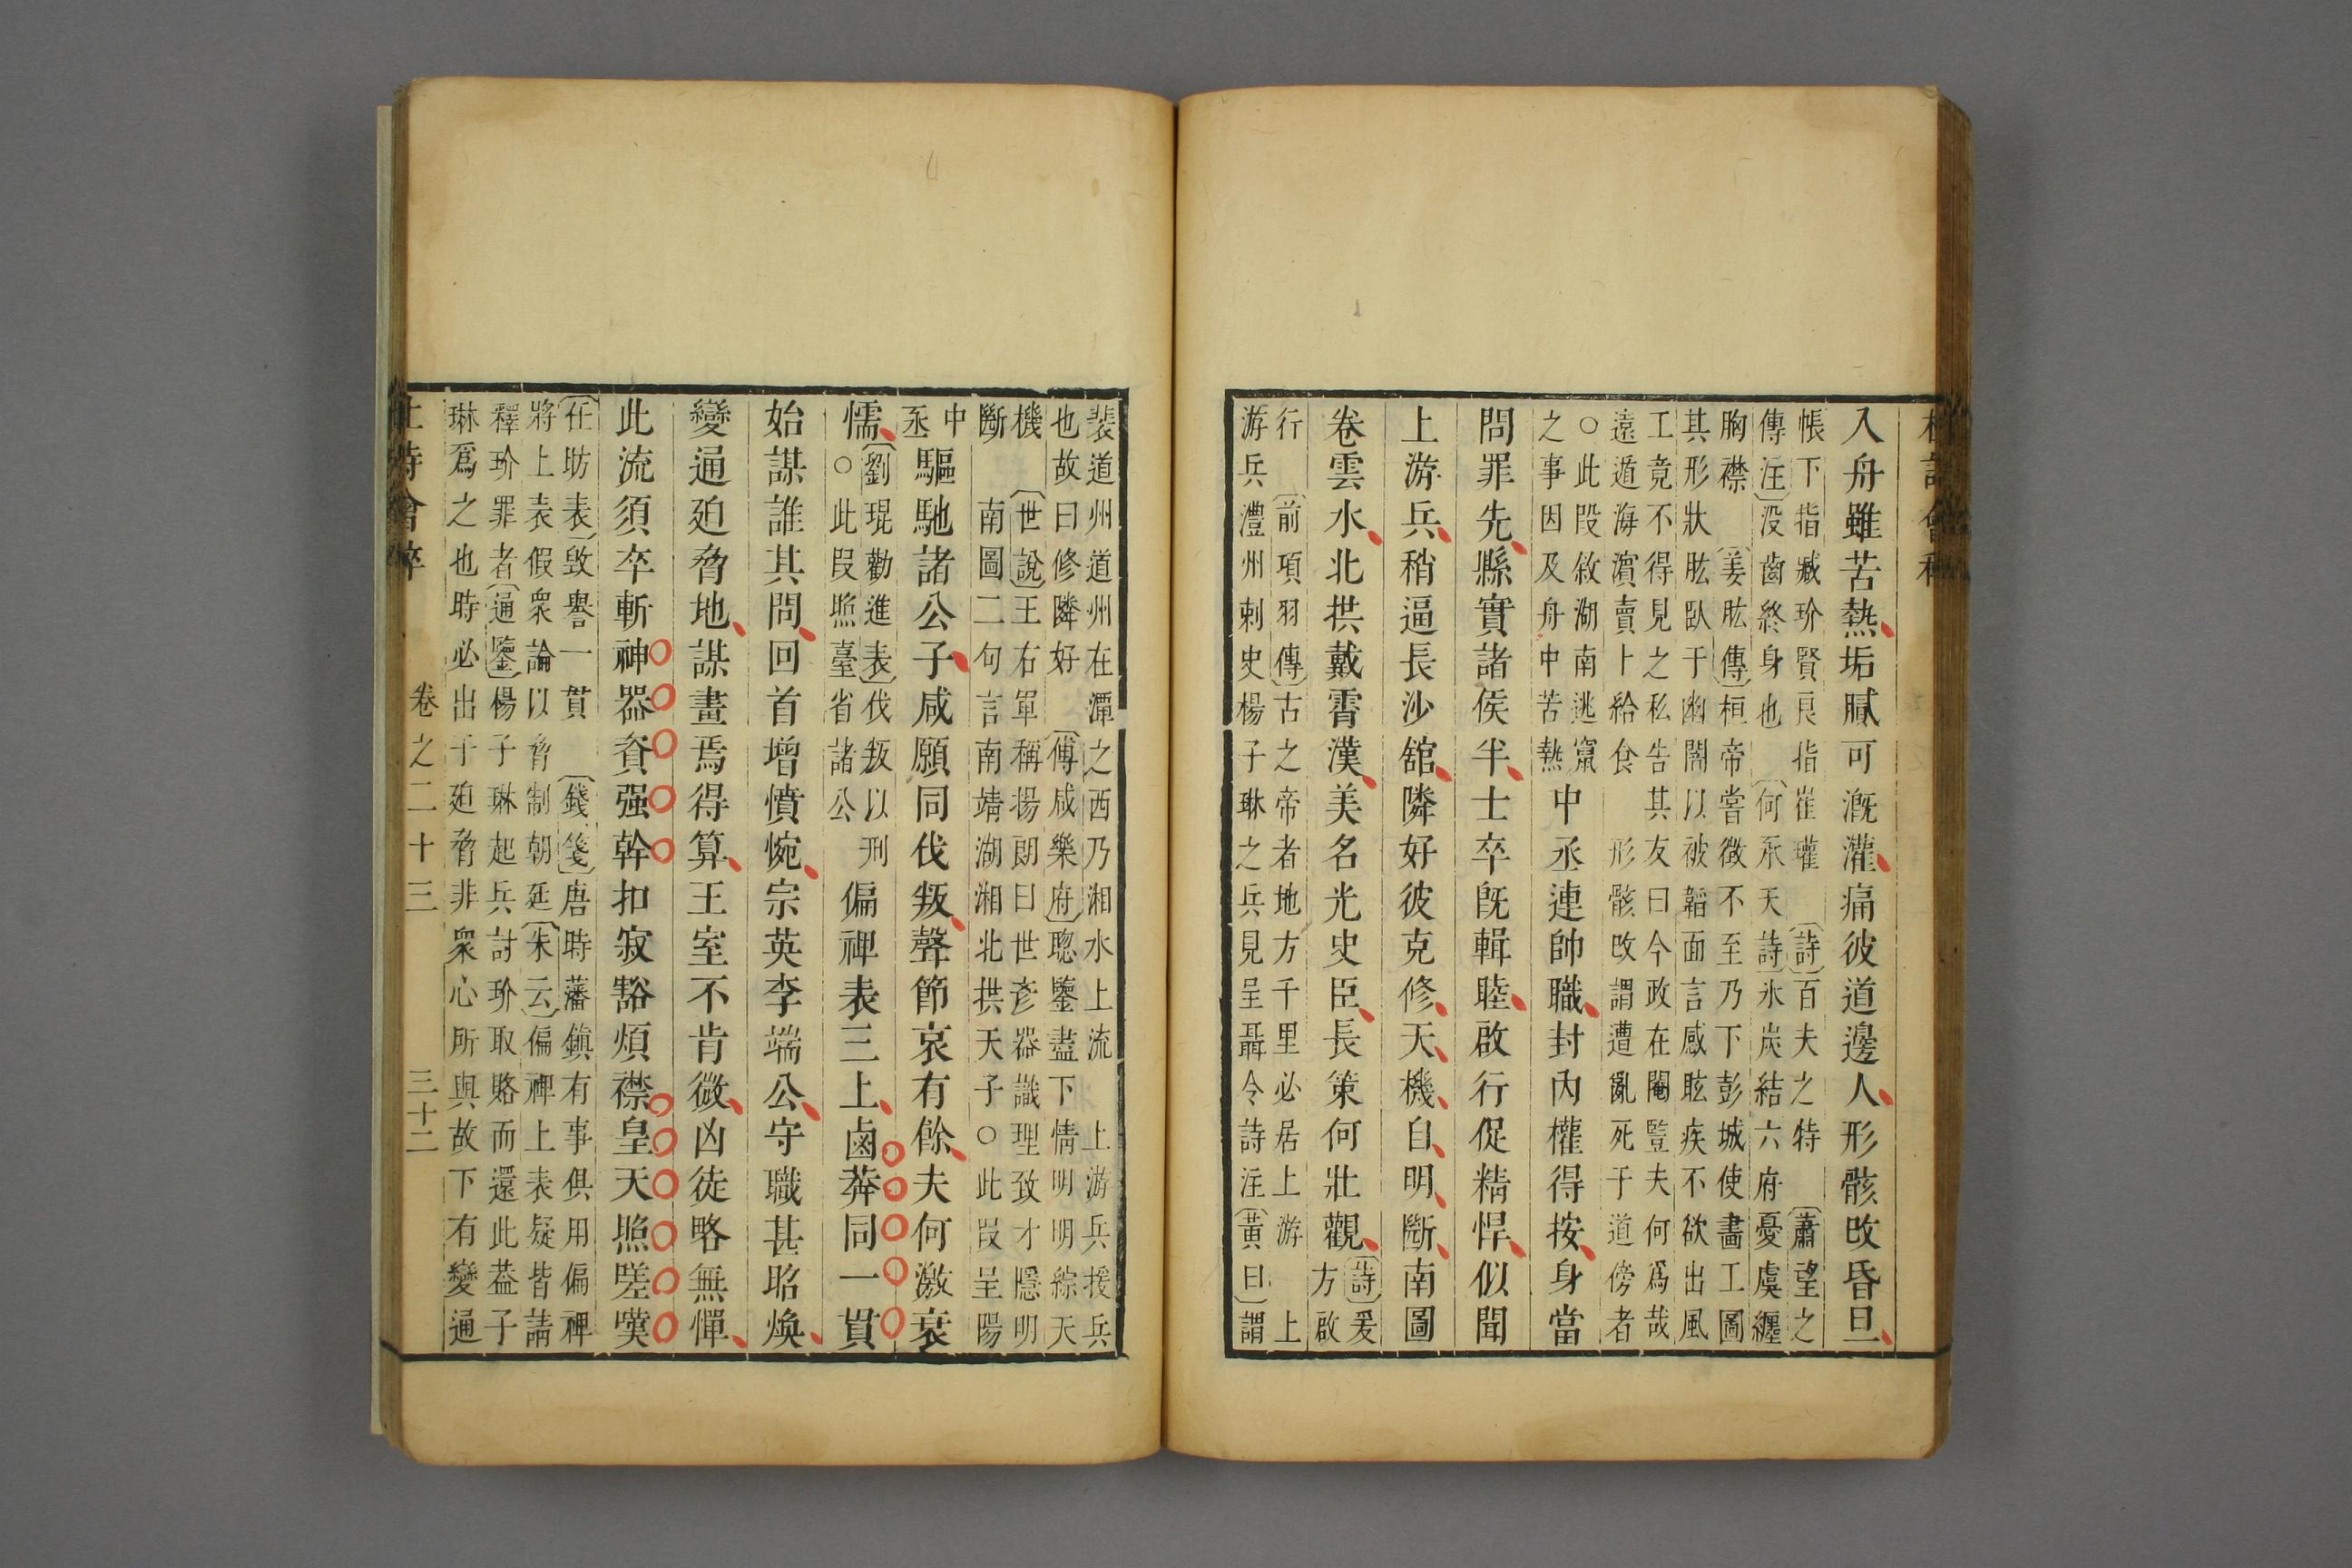 入舟雖苦熱垢膩可漑灌痛彼道邊人形骸改昏旦
帳下指臧玠賢良指崔瓘〔詩〕百夫之特〔蕭望之
傳注〕没齒終身也〔何承天詩〕氷炭結六府憂虞纏
胸襟〔姜肱傳〕桓帝嘗徵不至乃下彭城使畫工圖
其形狀肱臥于幽闇以被韜面言感眩疾不欲出風
工竟不得見之私告其友曰今政在閹豎夫何爲哉
遠遁海濱賣卜給食形骸改謂遭亂死于道傍者
○此段敘湖南逃竄
之事因及舟中苦熱
中丞連帥職封内權得按身當
問罪先縣實諸侯半士卒旣輯睦啟行促精悍似聞
上游兵稍逼長沙舘隣好彼克修天機自明斷南圖
卷雲水北拱戴霄漢美名光史臣長策何壯觀
〔詩〕爰
方啟
行〔前項羽傳〕古之帝者地方千里必居上游上
游兵澧州刺史楊子琳之兵見呈聶令詩注〔黃曰〕謂
裴道州道州在潭之西乃湘水上流上游兵援兵
也故曰修隣好〔傅咸樂府〕聰鑒盡下情明明綜天
機〔世說〕王右軍稱揚朗曰世彥器識理致才隱明
斷南圖二句言南靖湖湘北拱天子○此段呈陽
中
丞
驅馳諸公子咸願同伐叛聲節哀有餘夫何激衰
懦
〔劉琨勸進表〕伐叛以刑
○此段照臺省諸公
偏裨表三上鹵莽同一貫
始謀誰其問回首增憤惋宗英李端公守職甚昭煥
變通廹脅地謀畫焉得算王室不肯微凶徒略無憚
此流須卒斬神器資强幹扣寂豁煩襟皇天照嗟嘆
〔任昉表〕毀譽一貫〔錢箋〕唐時藩鎮有事俱用偏裨
將上表假衆論以脅制朝廷〔朱云〕偏裨上表疑皆請
釋玠罪者〔通鑒〕楊子琳起兵討玠取賂而還此葢子
琳爲之也時必出于廹脅非衆心所與故下有變通
卷之二十三
三十二